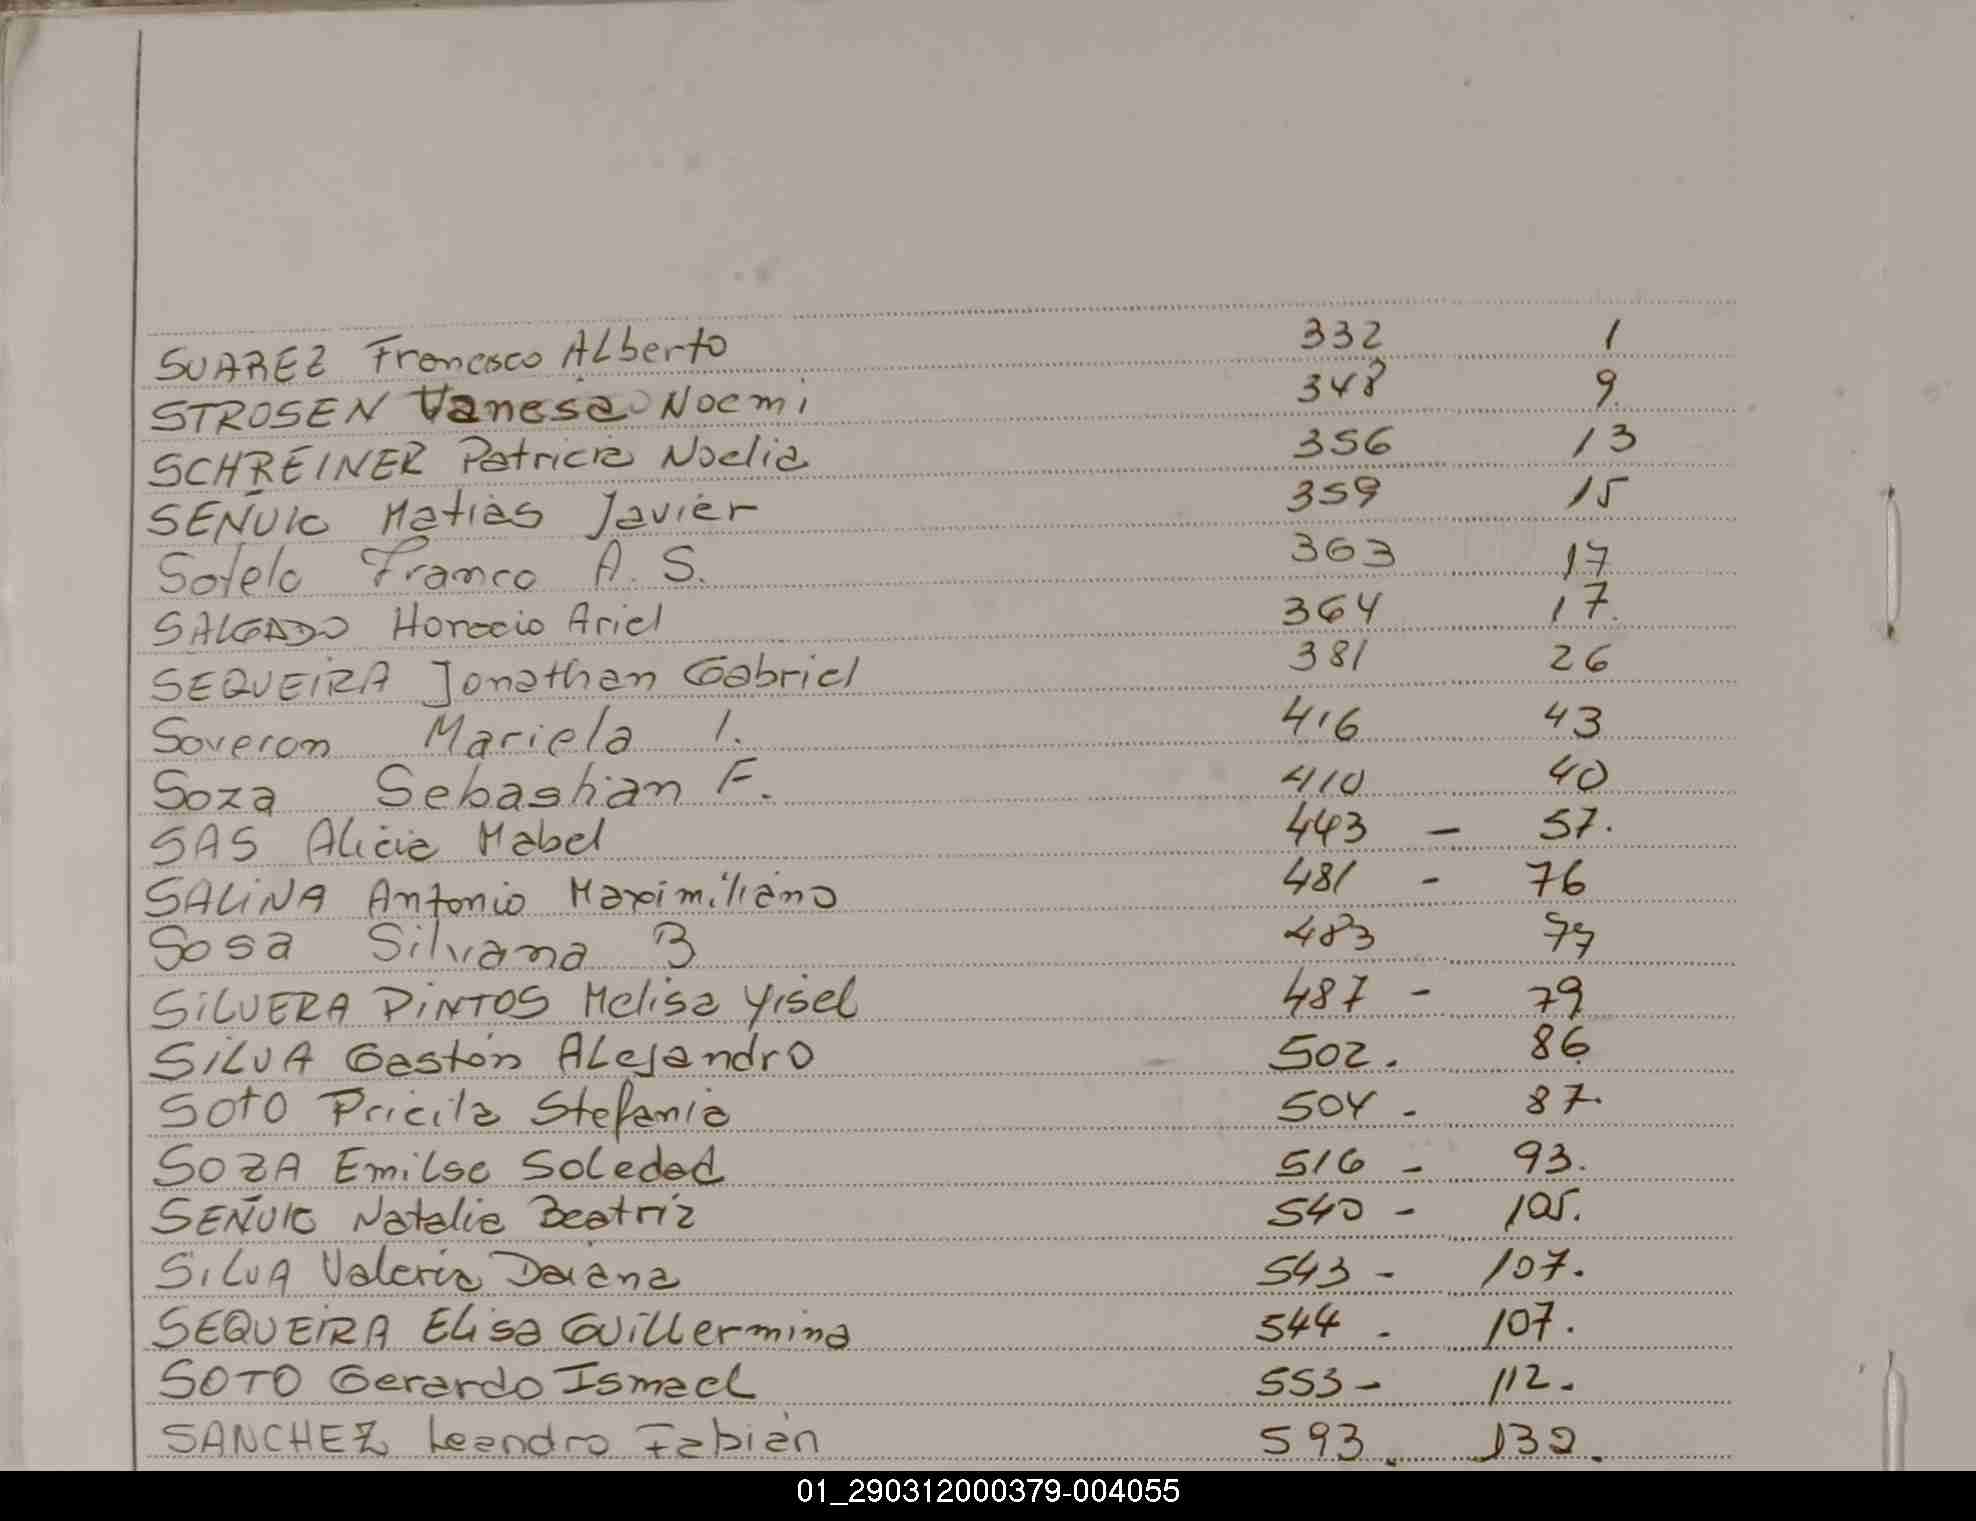 SUAREZ Francisco Alberto 332 1
STROSEN Vanesa Noemi 348 9.
SCHREINER Patricia Noelia 356 13
SEÑUK Matias Javier 359 15
Sotelo Franco A. S. 363 17
SALGADO Horacio Ariel 364 17.
SEQUEIRA Jonathan Gabriel 381 26
Soveron Mariela I. 416 43
Soza Sebashian F. 410 40
SAS Alicia Mabel 443 - 57.
SALINA Antonio Maximiliano 481 - 76
Sosa Silvana B 483 77
SILVERA PINTOS Melisa Yisel 487 - 79
SILVA Gastón ALejandro 502. 86
SOTO Pricila Stefania 504 - 87.
SOZA Emilse SOLedad 516 - 93.
SEÑUK Natalia Beatriz 540 - 105.
SILVA Valeria Daiana 543 - 107.
SEQUEIRA ELisa GuiLLermina 544 - 107.
SOTO Gerardo Ismael 553 - 112.
SANCHEZ Leandro Fabián 593. 132.
01_290312000379-004055